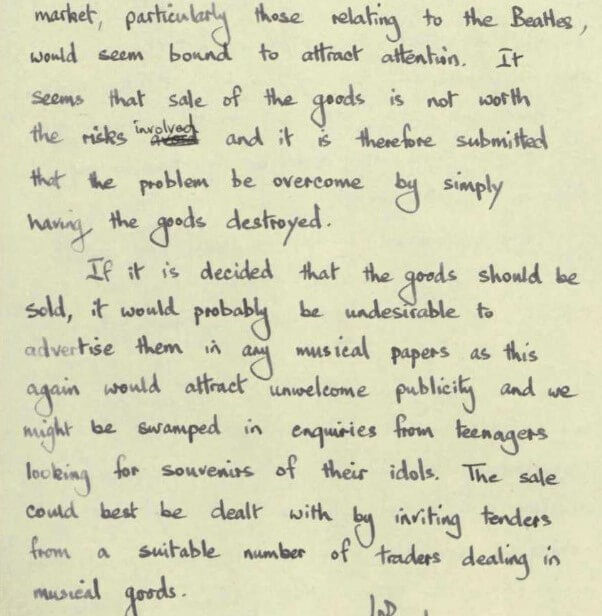 market, particularly those relating to the Beatles,
would seem bound to attract attention. It
seems that sale of the goods is not worth
the risks involved and it is therefore submitted
that the problem be overcome by simply
having the goods destroyed.
If it is decided that the goods should be
sold, it would probably be undesirable to
advertise them in any musical papers as this
again would attract unwelcome publicity and we
might be swamped in enquiries from teenagers
looking for souvenirs of their idols. The sale
could best be dealt with by inviting tenders
from a suitable number of traders dealing in
musical goods.